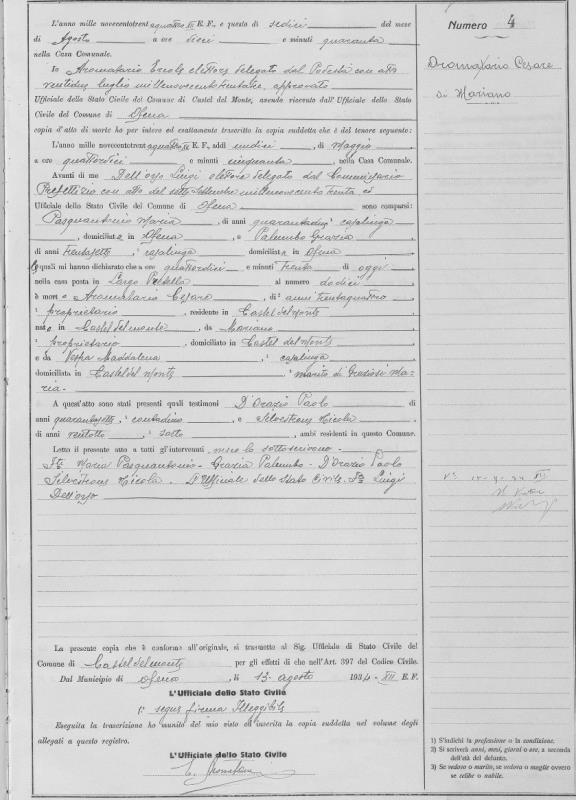 L'anno mille novecentotrentaquattro XII E. F., e questo dì sedici del mese
di Agosto a ore dieci e minuti quaranta
nella Casa Comunale.
Io Aromatario Ercole elettore delegato dal Podestà con atto
ventidue luglio millenovecentotrentatre, approvato
Ufficiale dello Stato Civile del Comune di Castel del Monte, avendo ricevuto dall'Ufficiale dello Stato
Civile del Comune di Ofena
copia d'atto di morte ho per intero ed esattamente trascritto la copia suddetta che è del tenore seguente:
L'anno mille novecentotrentaquattro XII E. F., addì undici, di Maggio,
a ore quattordici e minuti cinquanta, nella Casa Comunale.
Avanti di me Dell'Orso Luigi delegato dal Commissario
Prefettizio con atto del sette Settembre millenovecento trenta ed
Ufficiale dello Stato Civile del Comune di Ofena sono comparsi:
Pasquantonio Maria, di anni quarantadue, casalinga
, domiciliata in Ofena, e Palumbo Grazia
di anni trentasette, casalinga domiciliata in Ofena
le quali mi hanno dichiarato che a ore quattordici e minuti trenta di oggi
nella casa posta in Largo al numero dodici
è morto Aromatario Cesare di anni trentaquattro
proprietario, residente in Castel del monte
nato in Castel del monte, da Mariano
proprietario, domiciliato in Castel del monte
e da Vespa Maddalena, casalinga
domiciliata in Castel del Monte, marito di Graziosi Ma-
ria.
A quest'atto sono stati presenti quali testimoni D'Orazio Paolo di
anni quarantasette, contadino, e Silvestrone Nicola
di anni ventotto, sarto, ambi residenti in questo Comune.
Letto il presente atto a tutti gl'intervenuti, meco lo sottoscrivono.
Fto Maria Pasquantonio - Grazia Palumbo - D'Orazio Paolo
Silvestrone Nicola. L'Ufficiale dello Stato Civile. Fto Luigi
Dell'Orso
La presente copia che è conforme all'originale, si trasmette al Sig. Ufficiale di Stato Civile del
Comune di Castel del monte per gli effetti di che nell'Art. 397 del Codice Civile.
Dal Municipio di Ofena, li 13 agosto 1934 - XII E. F.
L'Ufficiale dello Stato Civile
segue firma illeggibile
Eseguita la trascrizione ho munito del mio visto ed inserita la copia suddetta nel volume degli
allegati a questo registro.
L'Ufficiale dello Stato Civile
E. Aromatario
Numero 4
Aromatario Cesare
di Mariano
1) S'indichi la professione o la condizione.
2) Si scriverà anni, mesi, giorni o ore, a seconda
dell'età del defunto.
3) Se vedovo o marito, se vedova o moglie ovvero
se celibe o nubile.